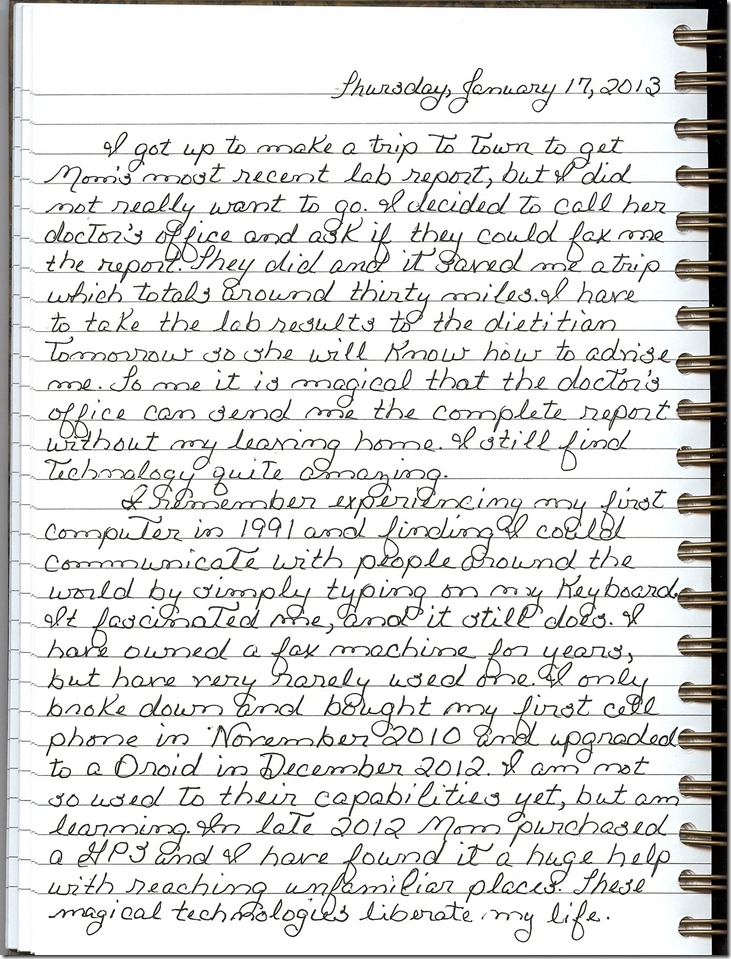 Thursday, January 17, 2013
I got up to make a trip to town to get
Mom's most recent lab report, but I did
not really want to go. I decided to call her
doctor's office and ask if they could fax me
the report. They did and it saved me a trip
which totals around thirty miles. I have
to take the lab results to the dietitian
tomorrow so she will know how to advise
me. To me it is magical that the doctor's
office can send me the complete report
without my leaving home. I still find
technology quite amazing.
I remember experiencing my first
computer in 1991 and finding I could
communicate with people around the
world by simply typing on my keyboard.
It fascinated me, and it still does. I
have owned a fax machine for years,
but have very rarely used one. I only
broke down and bought my first cell
phone in November 2010 and upgraded
to a Droid in December 2012. I am not
so used to their capabilities yet, but am
learning. In late 2012 Mom purchased
a GPS and I have found it a huge help
with reaching unfamiliar places. These
magical technologies liberate my life.